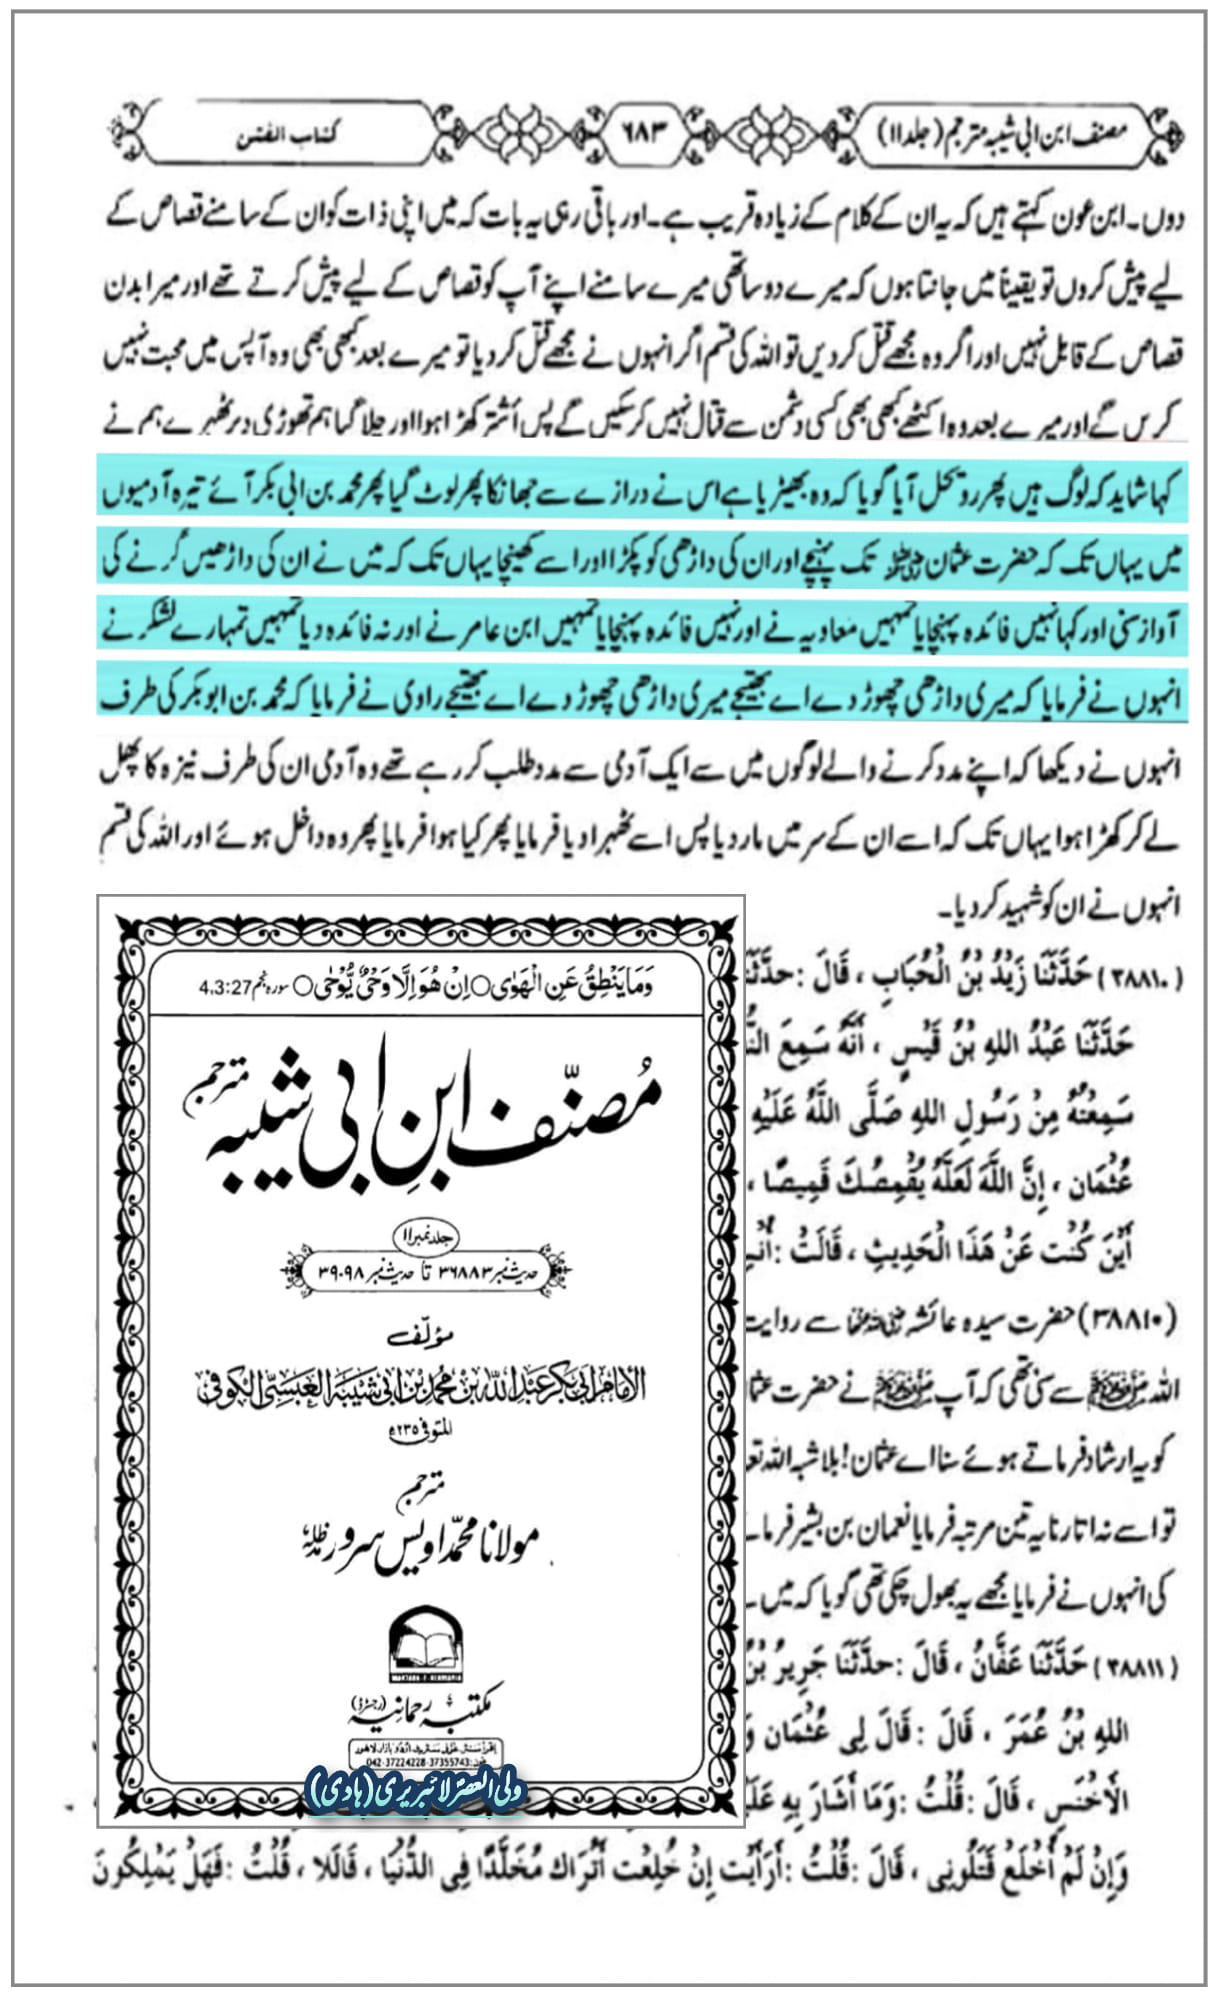 مصنف ابن ابی شیبہ مترجم (جلد ۱۱)
۶۸۳
کتاب الفتن
دوں۔ ابن عون کہتے ہیں کہ یہ ان کے کلام کے زیادہ قریب ہے۔ اور باقی رہی یہ بات کہ میں اپنی ذات کو ان کے سامنے قصاص کے
لیے پیش کروں تو یقیناً میں جانتا ہوں کہ میرے دو ساتھی میرے سامنے اپنے آپ کو قصاص کے لیے پیش کرتے تھے اور میرا بدن
قصاص کے قابل نہیں اور اگر وہ مجھے قتل کر دیں تو اللہ کی قسم اگر انہوں نے مجھے قتل کر دیا تو میرے بعد کبھی بھی وہ آپس میں محبت نہیں
کریں گے اور میرے بعد وہ اکٹھے کبھی بھی کسی دشمن سے قتال نہیں کر سکیں گے پس اُشتر کھڑا ہوا اور چلا گیا ہم تھوڑی دیر ٹھہرے ہم نے
کہا شاید کہ لوگ ہیں پھر رویحل آیا گویا کہ وہ بھیڑیا ہے اس نے درازے سے جھانکا پھر لوٹ گیا پھر محمد بن ابی بکر آئے تیرہ آدمیوں
میں یہاں تک کہ حضرت عثمان رضی اللہ عنہ تک پہنچے اور ان کی داڑھی کو پکڑا اور اسے کھینچا یہاں تک کہ میں نے ان کی داڑھیں گرنے کی
آواز سنی اور کہا نہیں فائدہ پہنچایا تمہیں معاویہ نے اور نہیں فائدہ پہنچایا تمہیں ابن عامر نے اور نہ فائدہ دیا تمہیں تمہارے لشکر نے
انہوں نے فرمایا کہ میری داڑھی چھوڑ دے اے بھتیجے میری داڑھی چھوڑ دے اے بھتیجے راوی نے فرمایا کہ محمد بن ابو بکر کی طرف
انہوں نے دیکھا کہ اپنے مدد کرنے والے لوگوں میں سے ایک آدمی سے مدد طلب کر رہے تھے وہ آدمی ان کی طرف نیزہ کا پھل
لے کر کھڑا ہوا یہاں تک کہ اسے ان کے سر میں مار دیا پس اسے ٹھہرا دیا فرمایا پھر کیا ہوا فرمایا پھر وہ داخل ہوئے اور اللہ کی قسم
انہوں نے ان کو شہید کر دیا۔
(۳۸۸۱۰) حَدَّثَنَا زَيْدُ بْنُ الْحُبَابِ ، قَالَ : حدَّثَنَا
حَدَّثَنَا عَبْدُ اللهِ بْنُ قَيْسٍ ، أَنَّهُ سَمِعَ
سَمِعْتُهُ مِنْ رَسُولِ اللهِ صَلَّى اللَّهُ عَلَيْهِ
عُثْمَان ، إِنَّ اللَّهَ لَعَلَّهُ يُقَمِّصُكَ قَمِيصًا ،
أَيْنَ كُنْت عَنْ هَذَا الْحَدِيثِ ، قَالَتْ :
(۳۸۸۱۰) حضرت سیدہ عائشہ رضی اللہ عنہا سے روایت
اللہ صلی اللہ علیہ وسلم سے سنی تھی کہ آپ صلی اللہ علیہ وسلم نے حضرت
کو یہ ارشاد فرماتے ہوئے سنا اے عثمان! بلا شبہ اللہ
تو اسے نہ اتارنا یہ تین مرتبہ فرمایا نعمان بن بشیر
کی انہوں نے فرمایا مجھے یہ بھول چکی تھی گویا کہ میں
(۳۸۸۱۱) حَدَّثَنَا عَفَّانُ ، قَالَ : حدَّثَنَا جَرِيرُ بْنُ
اللهِ بْنُ عُمَرَ ، قَالَ : قَالَ لِي عُثْمَان
الأَخْنَسِ ، قَالَ : قُلْتُ : وَمَا أَشَارَ بِهِ
وَإِنْ لَمْ أَخْلَعْ قَتَلُونِي ، قَالَ : قُلْتُ : أَرَأَيْت إِنْ خُلِعْت أَتُرَاك مُخَلَّدًا فِي الدُّنْيَا ، قَالَ لا ، قُلْتُ : فَهَلْ يَمْلِكُونَ
وَمَا يَنْطِقُ عَنِ الْهَوٰى ○ اِنْ هُوَ اِلَّا وَحْيٌ يُّوْحٰى ○ سورہ نجم 4,3:27
مُصنّف ابنِ ابی شیبہ مترجم
جلد نمبر ۱۱
حدیث نمبر ۳۶۸۸۳ تا حدیث نمبر ۳۹۰۹۸
مؤلّف
الامام ابی بکر عبداللہ بن محمد بن ابی شیبة العبسی الکوفی
المتوفی ۲۳۵ھ
مترجم
مولانا محمد اویس سرور مدظلہ
MAKTABA-E-REHMANIA
مکتبہ رحمانیہ (رجسٹرڈ)
اقرأ سنٹر غزنی سٹریٹ اردو بازار لاہور
فون: 042-37224228-37355743
ولی العصر لائبریری (ہادی)